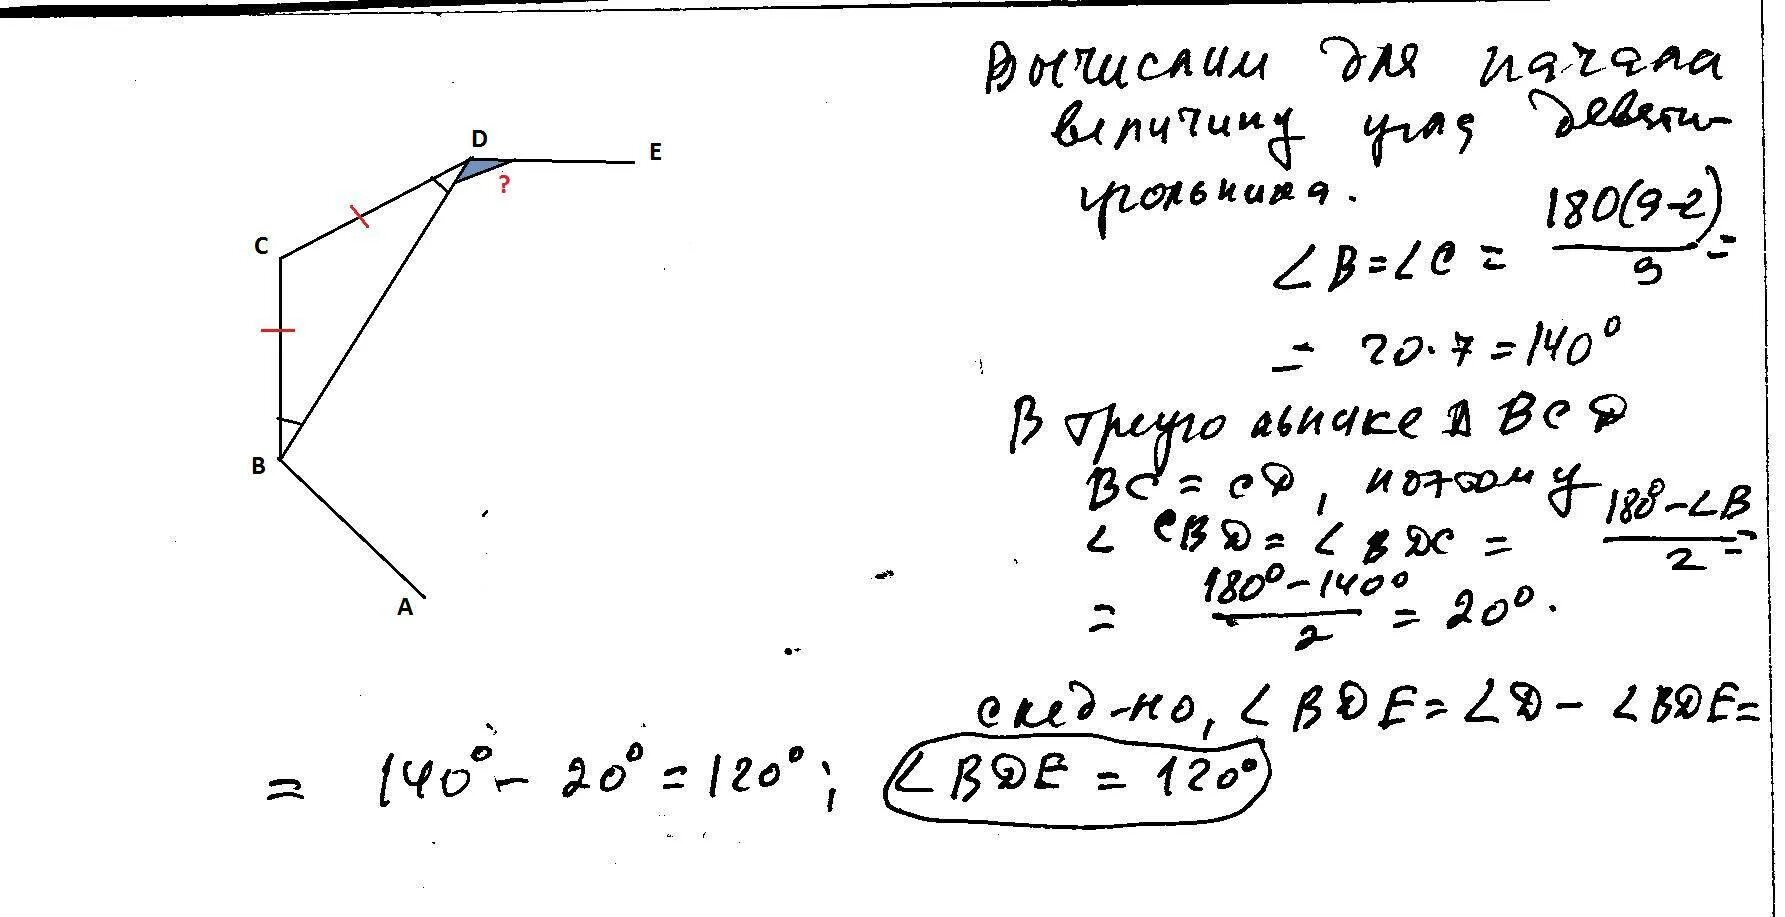 D
E
?
C
B
A
Вычислим для начала
величину угла девяти-
угольника.
∠B=∠C = 180(9-2)/9 =
= 20·7=140°
В треугольнике Δ BCD
BC = CD, поэтому
∠ CBD = ∠ BDC = 180°-∠B/2 =
= 180°-140°/2 = 20°.
след-но, ∠BDE = ∠D - ∠BDE =
= 140° - 20° = 120°; ∠BDE = 120°